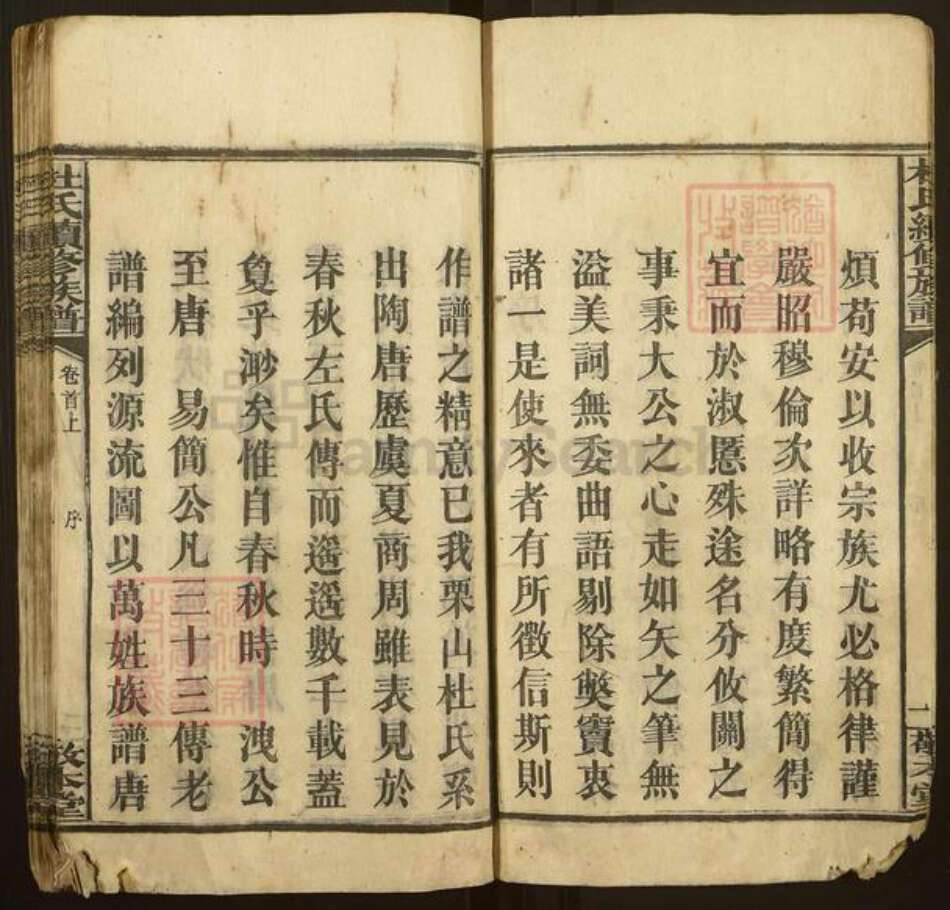 杜氏續修族譜
一
敦本堂
煩苟安以收宗族尤必格律謹
嚴昭穆倫次詳略有度繁簡得
宜而於淑慝殊途名分攸關之
事秉大公之心走如矢之筆無
溢美詞無委曲語剔除獘竇衷
諸一是使來者有所徵信斯則
作譜之精意已我栗山杜氏系
出陶唐歷虞夏商周雖表見於
春秋左氏傳而遥遥數千載蓋
敻乎渺矣惟自春秋時 洩公
至唐 易簡公凡三十三傳老
譜編列源流圖以萬姓族譜唐
杜氏續修族譜
卷首上
序
二
敦本堂
FamilySearch